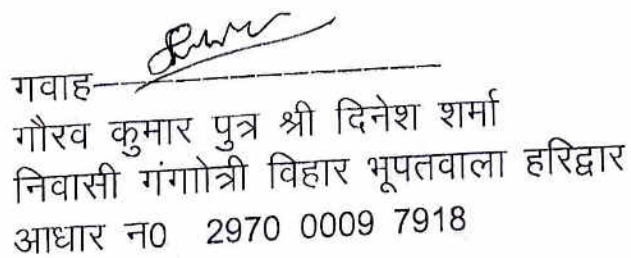 गवाह-
गौरव कुमार पुत्र श्री दिनेश शर्मा
निवासी गंगाोत्री विहार भूपतवाला हरिद्वार
आधार न0 2970 0009 7918